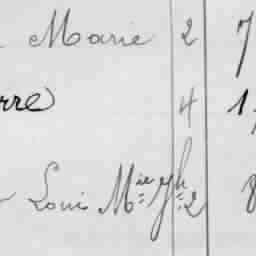 Marie 2 7
rre 4 1
Louis Mie Jh 2 8